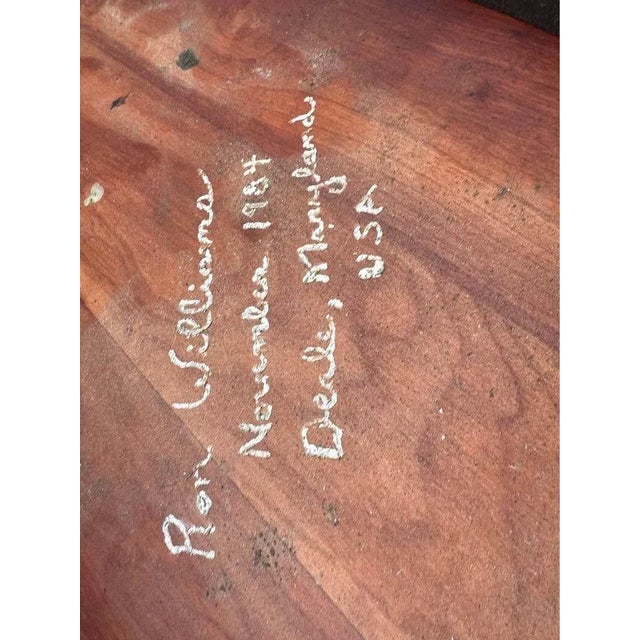 Ron Williams
November 1984
Deale, Maryland
USA